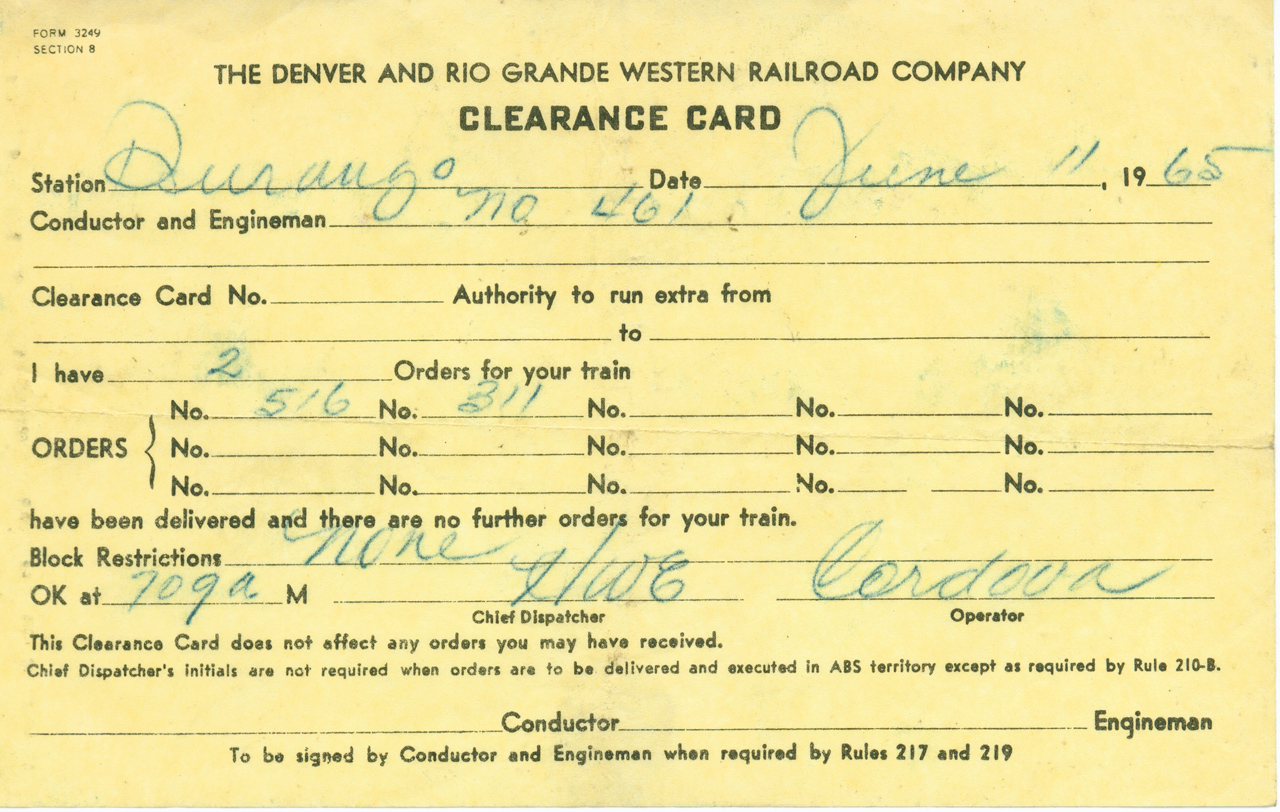 FORM 3249
SECTION 8
THE DENVER AND RIO GRANDE WESTERN RAILROAD COMPANY
CLEARANCE CARD
Station Durango Date June 11, 1965
Conductor and Engineman No 461
Clearance Card No. Authority to run extra from
to
I have 2 Orders for your train
No. 516 No. 311 No. No. No.
ORDERS { No. No. No. No. No.
No. No. No. No. No.
have been delivered and there are no further orders for your train.
Block Restrictions None
OK at 709a M HWE Cordova
Chief Dispatcher Operator
This Clearance Card does not affect any orders you may have received.
Chief Dispatcher's initials are not required when orders are to be delivered and executed in ABS territory except as required by Rule 210-B.
Conductor Engineman
To be signed by Conductor and Engineman when required by Rules 217 and 219